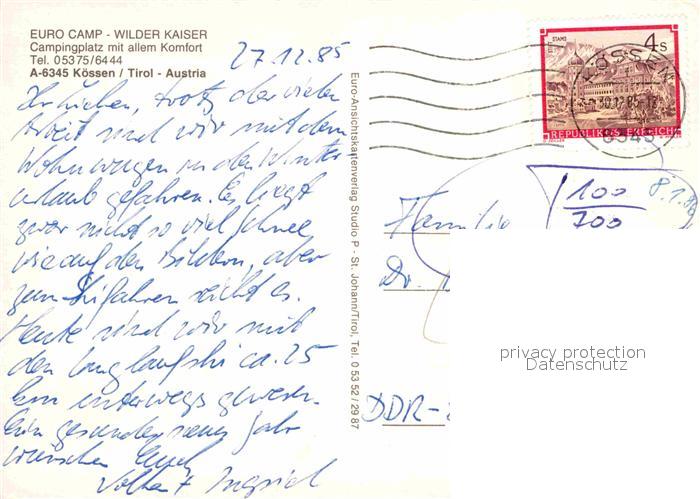 EURO CAMP - WILDER KAISER
Campingplatz mit allem Komfort
Tel. 05375/6444
A-6345 Kössen / Tirol - Austria
27.12.85
Ihr Lieben, trotz der vielen
Arbeit sind wir mit dem
Wohnwagen in den Winter-
urlaub gefahren. Es liegt
zwar nicht so viel Schnee
wie auf den Bildern, aber
zum Skifahren reicht es.
Heute sind wir mit
den Langlaufski ca. 25
km unterwegs gewesen.
Ein gesundes neues Jahr
wünschen Euch
Volker + Ingrid
Euro-Ansichtskartenverlag Studio P - St. Johann/Tirol, Tel. 0 53 52 / 29 87
STAMS
4 S
REPUBLIK ÖSTERREICH
KÖSSEN
30.12.85
6345
100
700
8.1.86
Familie
Dr.
DDR-
privacy protection
Datenschutz